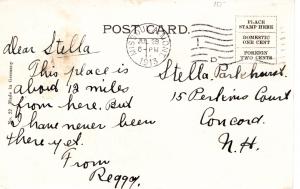 POST CARD.
PLACE
STAMP HERE
DOMESTIC
ONE CENT
FOREIGN
TWO CENTS
1913
Dear Stella
This place is
about 12 miles
from here. But
I have never been
there yet.
From
Reggy.
Stella Parkhurst
15 Perkins Court
Concord.
N.H.
Made in Germany